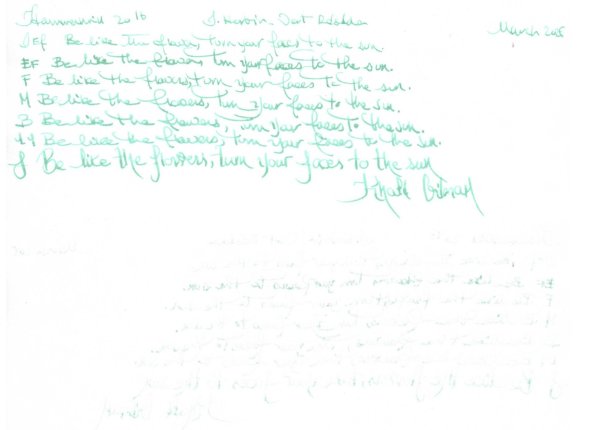 2016 J. Herbin, Vert Réséda March
EF Be like the flowers, turn your faces to the sun.
EF Be like the flowers turn your faces to the sun.
F Be like the flowers, turn your faces to the sun.
M Be like the flowers, turn your faces to the sun.
B Be like the flowers, turn your faces to the sun.
Be like the flowers, turn your faces to the sun.
Be like the flowers, turn your faces to the sun
Khalil Gibran